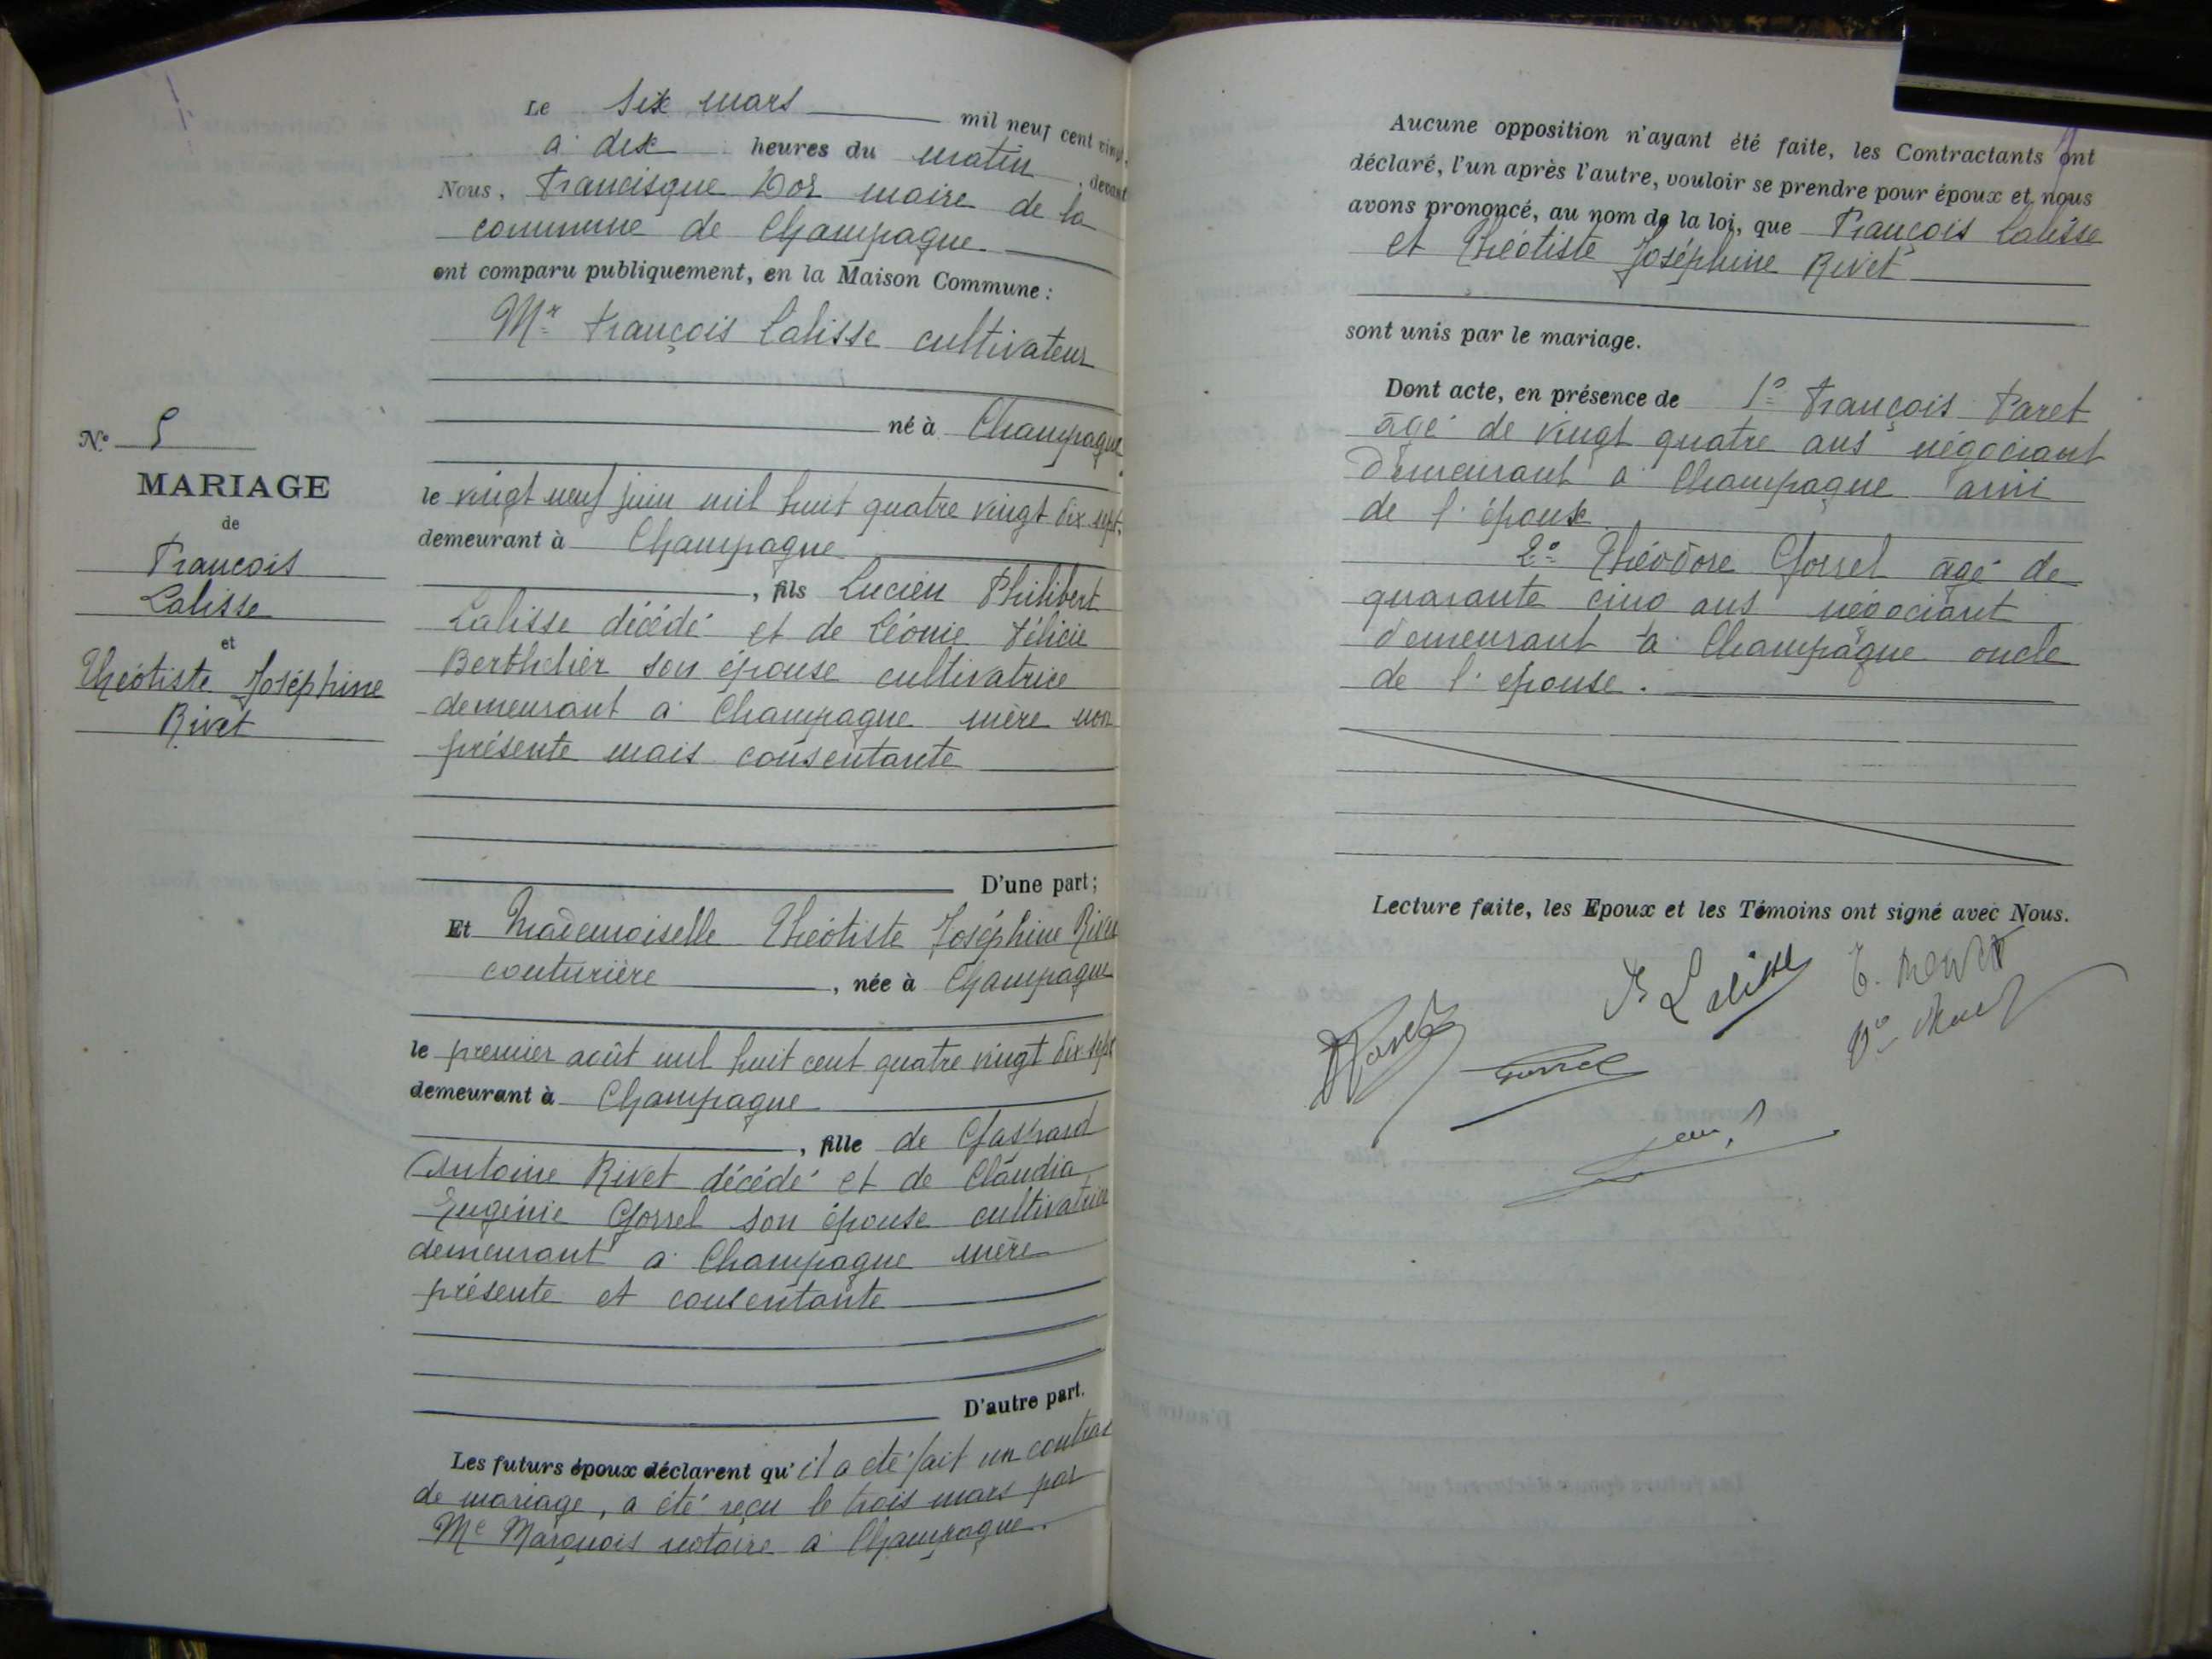 Le six mars mil neuf cent vingt,
à dix heures du matin, devant
Nous, Francisque Dor maire de la
commune de Champagne
ont comparu publiquement, en la Maison Commune :
Mr François Lalisse cultivateur
né à Champagne
le vingt neuf juin mil huit quatre vingt dix sept,
demeurant à Champagne
, fils Lucien Philibert
Lalisse décédé et de Léonie Félicie
Berthelier son épouse cultivatrice
demeurant à Champagne mère non
présente mais consentante
D'une part;
Et Mademoiselle Théotiste Joséphine Rivet
couturière, née à Champagne
le premier août mil huit cent quatre vingt dix sept
demeurant à Champagne
, fille de Gaspard
Antoine Rivet décédé et de Claudia
Eugénie Gorrel son épouse cultivatrice
demeurant à Champagne mère
présente et consentante
D'autre part.
Les futurs époux déclarent qu'il a été fait un contrat
de mariage, a été reçu le trois mars par
Me Marquois notaire à Champagne.
N° 5
MARIAGE
de
François
Lalisse
et
Théotiste Joséphine
Rivet
Aucune opposition n'ayant été faite, les Contractants ont
déclaré, l'un après l'autre, vouloir se prendre pour époux et nous
avons prononcé, au nom de la loi, que François Lalisse
et Théotiste Joséphine Rivet
sont unis par le mariage.
Dont acte, en présence de 1° François Paret
âgé de vingt quatre ans négociant
demeurant à Champagne ami
de l'époux
2° Théodore Gorrel âgé de
quarante cinq ans négociant
demeurant à Champagne oncle
de l'épouse.
Lecture faite, les Epoux et les Témoins ont signé avec Nous.
F Lalisse
Gorrel